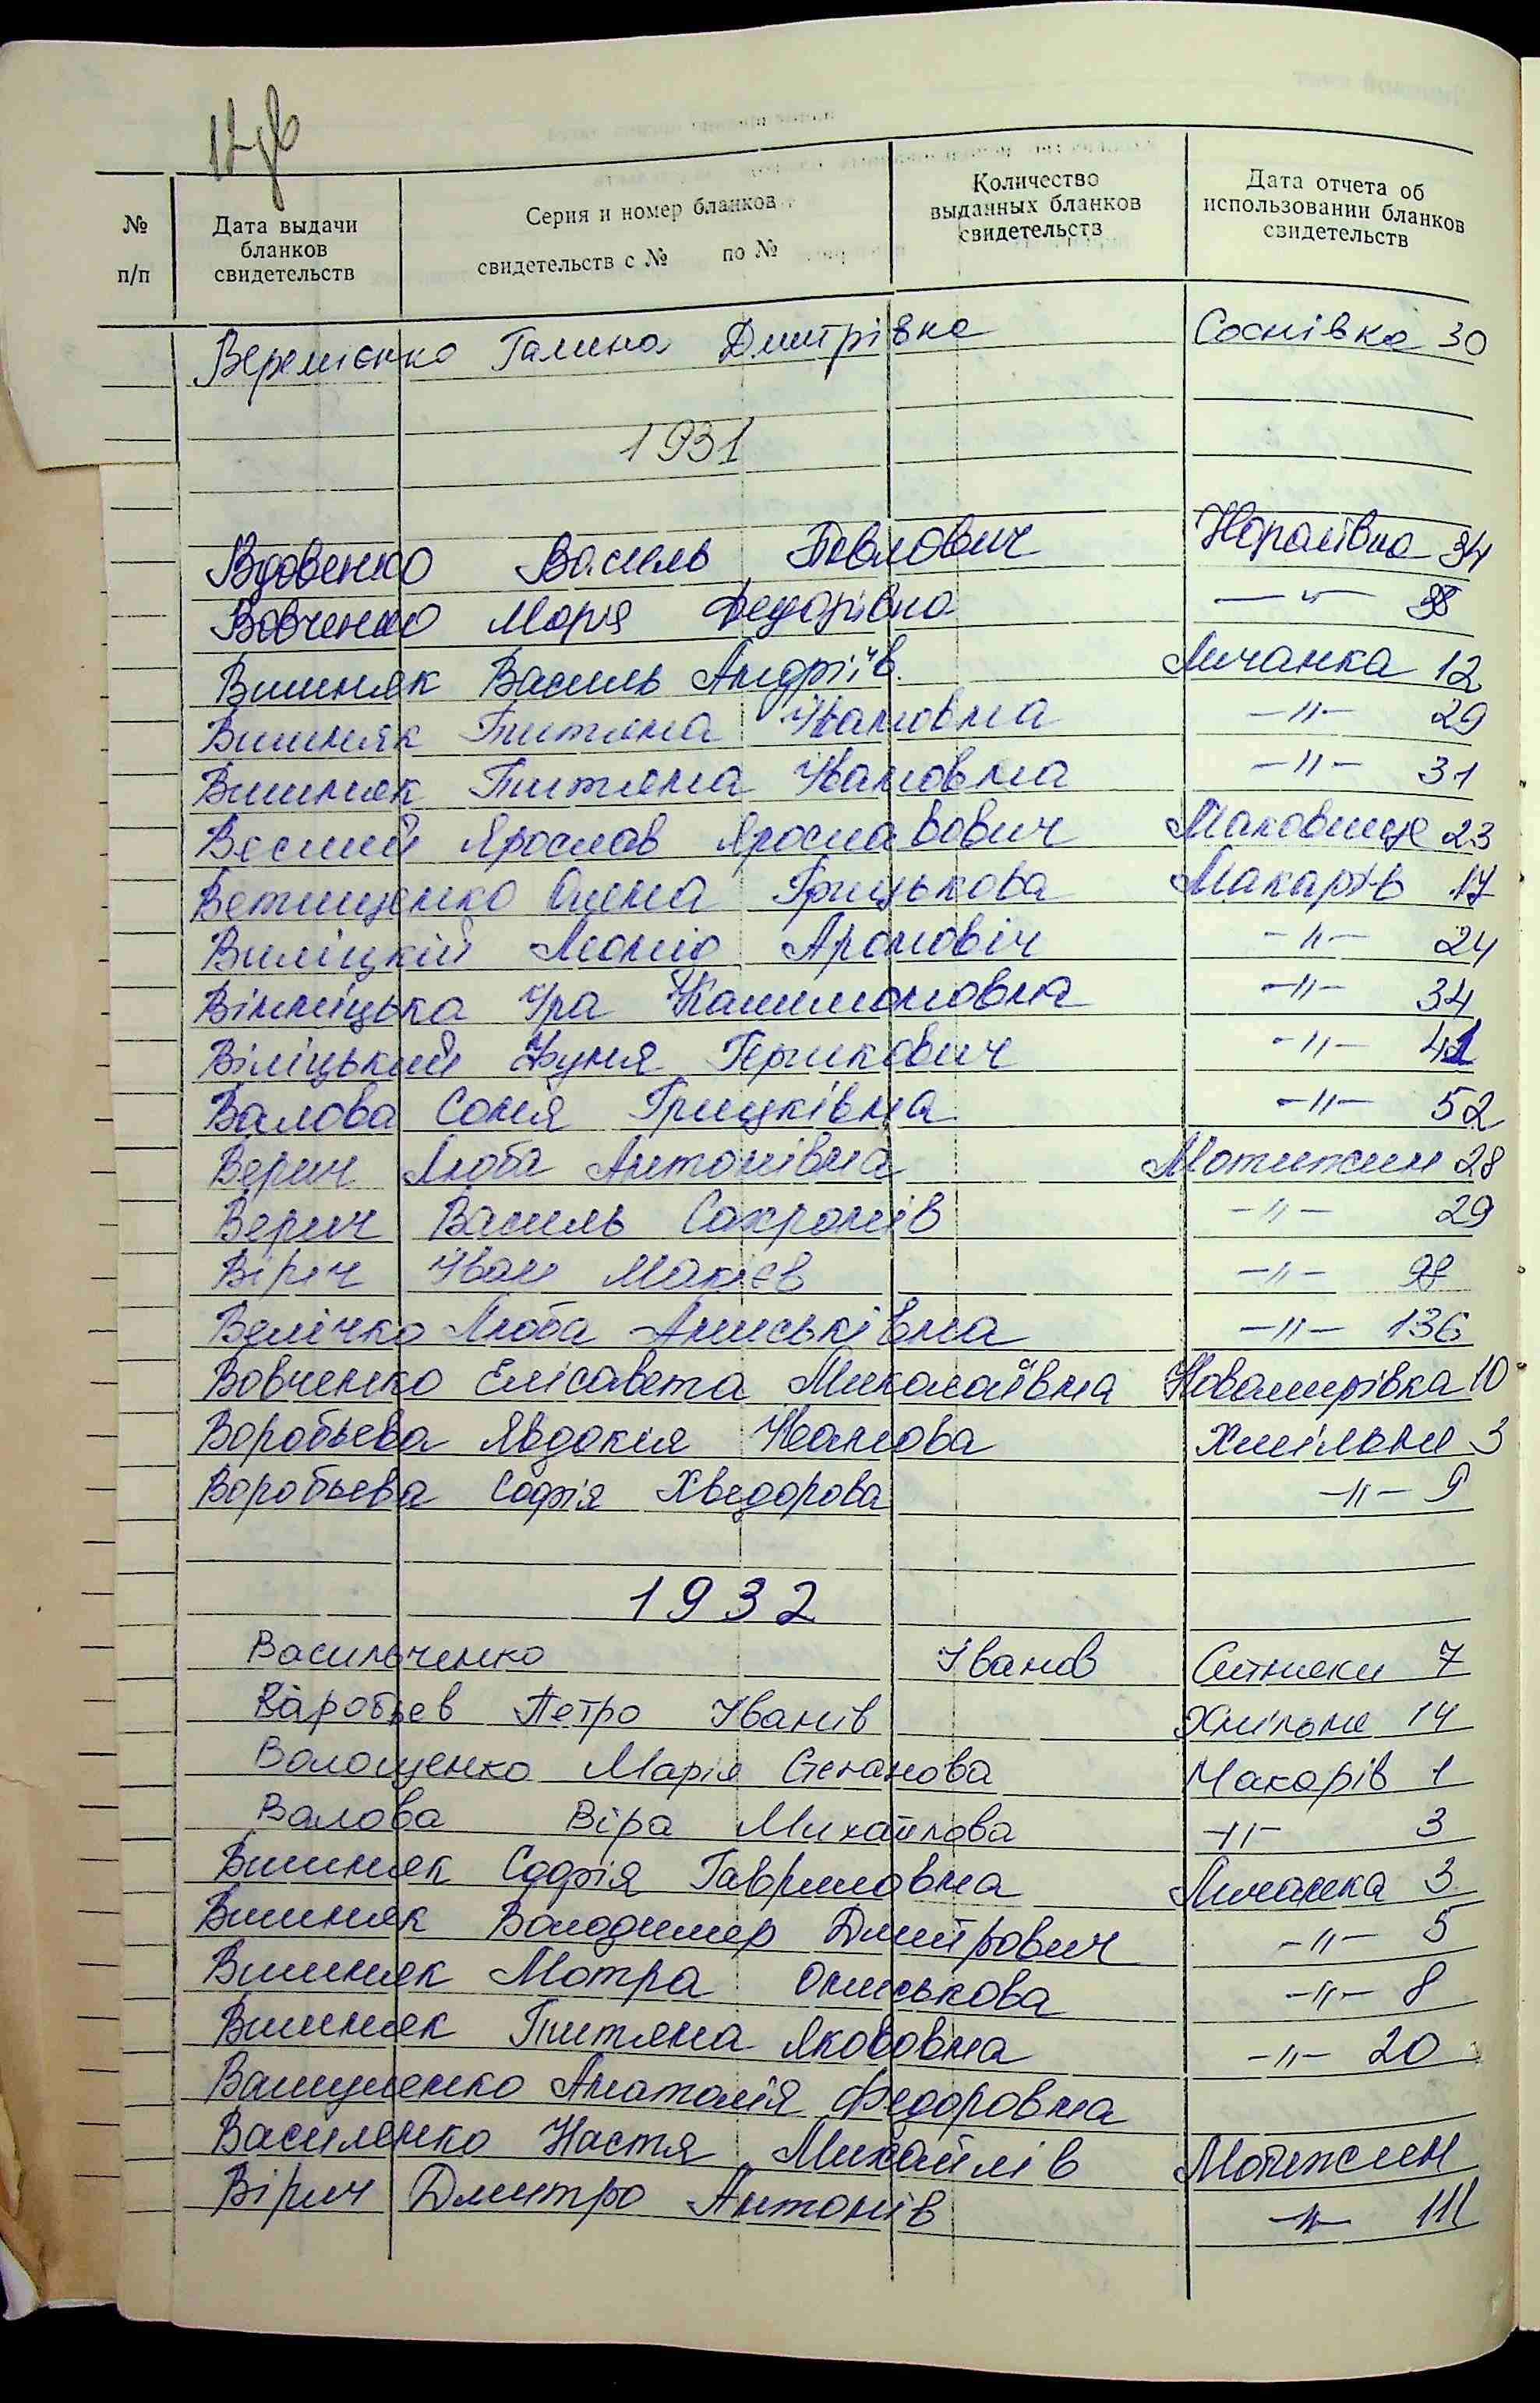 12зв
№ п/п
Дата выдачи бланков свидетельств
Серия и номер бланков
свидетельств с № по №
Количество выданных бланков свидетельств
Дата отчета об использовании бланков свидетельств
Веремієнко Галина Дмитрівна Соснівка 30
1931
Вдовенко Василь Павлович 34
Вовченко Марія Федорівна -"- 38
Вишняк Василь Андріїв Личанка 12
Вишняк Титяна Івановна -"- 29
Вишняк Титяна Івановна -"- 31
Веслий Ярослав Ярославович Маковище 23
Ветищенко Олена Грицькова Макарів 17
Виліцкій Моніо Ароновіч -"- 24
Вінніцька Іра -"- 34
Віліцький Фуня Гершкович -"- 41
Валова Соня Грицківна -"- 52
Верич Люба Антонівна Мотижин 28
Верич Василь Сахронів -"- 29
Віріч Іван Макієв -"- 98
Велічко Люба Аниськівна -"- 136
Вовченко Елісавета Миколаївна Новомирівка 10
Воробьева Явдокія Іванова Хмільна 3
Воробьева Софія Хведорова -"- 9
1932
Васильченко Іванов Ситняки 7
Варобьев Петро Іванів Хмільна 14
Волощенко Марія Степанова Макарів 1
Валова Віра Михайлова -"- 3
Вишняк Софія Гавриловна Личанка 3
Вишняк Володимер Дмитрович -"- 5
Вишняк Мотра Ониськова -"- 8
Вишняк Титяна Якововна -"- 20
Ващуменко Анатолія Федоровна
Василенко Настя Михайлів Мотижин
Вірич Дмитро Антонів -"- 111